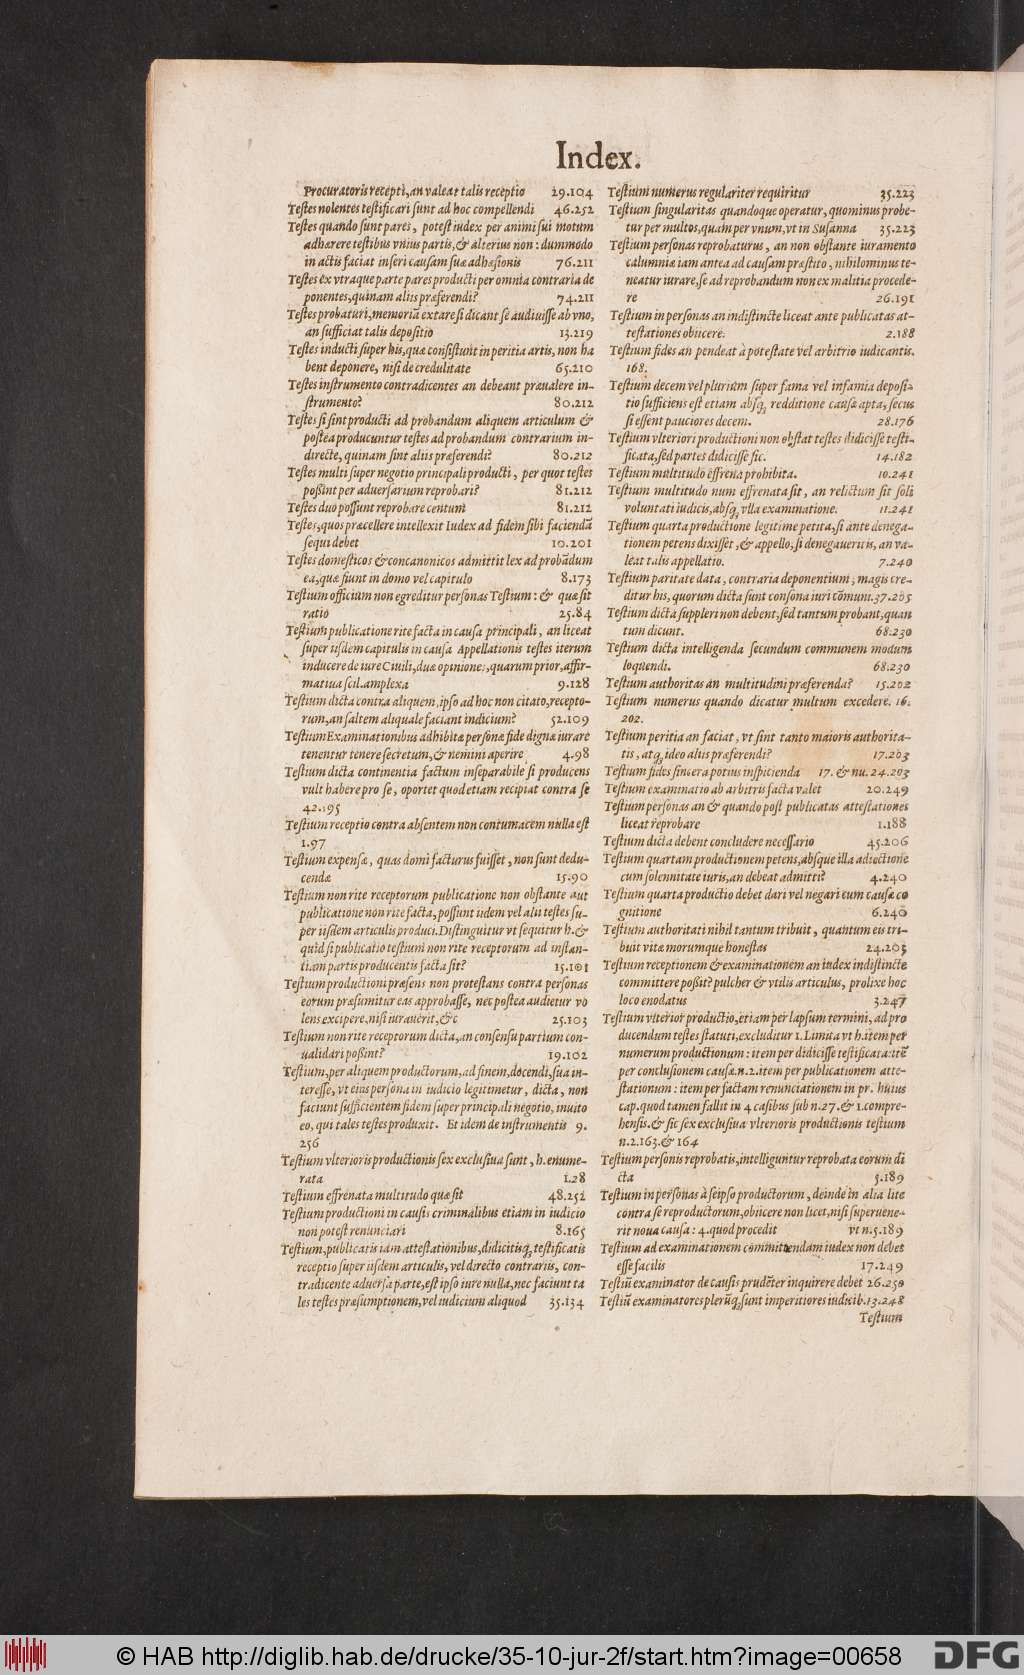 Index.
Procuratoris recepti, an valeat talis receptio 29.104
Testes nolentes testificari sunt ad hoc compellendi 46.252
Testes quando sunt pares, potest iudex per animi sui motum
adhærere testibus vnius partis, & alterius non: dummodo
in actis faciat inseri causam suæ adhæsionis 76.211
Testes ex vtraque parte pares producti per omnia contraria de
ponentes, quinam aliis præferendi? 74.211
Testes probaturi, memoriã extare, si dicant se audiuisse ab vno,
an sufficiat talis depositio 13.219
Testes inducti super his, quæ consistunt in peritia artis, non ha
bent deponere, nisi de credulitate 65.210
Testes instrumento contradicentes an debeant præualere in-
strumento? 80.212
Testes si sint producti ad probandum aliquem articulum &
postea producuntur testes ad probandum contrarium in-
directe, quinam sint aliis præferendi? 80.212
Testes multi super negotio principali producti, per quot testes
poßint per aduersarium reprobari? 81.212
Testes duo possunt reprobare centum 81.212
Testes, quos præcellere intellexit Iudex ad fidem sibi faciendã
sequi debet 10.201
Testes domesticos & concanonicos admittit lex ad probãdum
ea, quæ fiunt in domo vel capitulo 8.173
Testium officium non egreditur personas Testium: & quæ sit
ratio 25.84
Testium publicatione rite facta in causa principali, an liceat
super iisdem capitulis in causa Appellationis testes iterum
inducere de iure Ciuili, duæ opiniones, quarum prior, affir-
matiua scil. amplexa 9.128
Testium dicta contra aliquem, ipso ad hoc non citato, recepto-
rum, an saltem aliquale faciant indicium? 52.109
Testium Examinationibus adhibitæ personæ fide dignæ iurare
tenentur tenere secretum, & nemini aperire 4.98
Testium dicta continentia factum inseparabile si producens
vult habere pro se, oportet quod etiam recipiat contra se
42.195
Testium receptio contra absentem non contumacem nulla est
1.97
Testium expensæ, quas domi facturus fuisset, non sunt dedu-
cendæ 15.90
Testium non rite receptorum publicatione non obstante aut
publicatione non rite facta, possunt iidem vel alii testes su-
per iisdem articulis produci. Distinguitur vt sequitur h. &
quid si publicatio testium non rite receptorum ad instan-
tiam partis producentis facta sit? 15.101
Testium productioni præsens non protestans contra personas
eorum præsumitur eas approbasse, nec postea audietur vo
lens excipere, nisi iurauerit, &c 25.103
Testium non rite receptorum dicta, an consensu partium con-
ualidari poßint? 19.102
Testium, per aliquem productorum, ad finem, docendi, sua in-
teresse, vt eius persona in iudicio legitimetur, dicta, non
faciunt sufficientem fidem super principali negotio, inuito
eo, qui tales testes produxit. Et idem de instrumentis 9.
256
Testium vlterioris productionis sex exclusiua sunt, h. enume-
rata 1.28
Testium effrenata multitudo quæ sit 48.252
Testium productioni in causis criminalibus etiam in iudicio
non potest renunciari 8.165
Testium, publicatis iam attestationibus, didicitisq́, testificatis
receptio super iisdem articulis, vel directo contrariis, con-
tradicente aduersa parte, est ipso iure nulla, nec faciunt ta
les testes præsumptionem, vel iudicium aliquod 35.134
Testium numerus regulariter requiritur 35.223
Testium singularitas quandoque operatur, quominus probe-
tur per multos, quam per vnum, vt in Susanna 35.223
Testium personas reprobaturus, an non obstante iuramento
calumniæ iam antea ad causam præstito, nihilominus te-
neatur iurare, se ad reprobandum non ex malitia procede-
re 26.191
Testium in personas an indistincte liceat ante publicatas at-
testationes obiicere. 2.188
Testium fides an pendeat à potestate vel arbitrio iudicantis.
168.
Testium decem vel plurium super fama vel infamia deposi-
tio sufficiens est etiam absq́; redditione causæ apta, secus
si essent pauciores decem. 28.176
Testium vlteriori productioni non obstat testes didicisse testi-
ficata, sed partes didicisse sic. 14.182
Testium multitudo effrena prohibita. 10.241
Testium multitudo num effrenata sit, an relictum sit soli
voluntati iudicis, absq́; vlla examinatione. 11.241
Testium quarta productione legitime petita, si ante denega-
tionem petens dixisset, & appello, si denegaueritis, an va-
leat talis appellatio. 7.240
Testium paritate data, contraria deponentium, magis cre-
ditur his, quorum dicta sunt consona iuri cõmuni. 37.205
Testium dicta suppleri non debent, sed tantum probant, quan
tum dicunt. 68.230
Testium dicta intelligenda secundum communem modum
loquendi. 68.230
Testium authoritas an multitudini præferenda? 15.202
Testium numerus quando dicatur multum excedere. 16.
202.
Testium peritia an faciat, vt sint tanto maioris authorita-
tis, atq́; ideo aliis præferendi? 17.203
Testium fides sincera potius inspicienda 17. & nu. 24.203
Testium examinatio ab arbitris facta valet 20.249
Testium personas an & quando post publicatas attestationes
liceat reprobare 1.188
Testium dicta debent concludere necessario 45.206
Testium quartam productionem petens, absque illa adiectione
cum solennitate iuris, an debeat admitti? 4.240
Testium quarta productio debet dari vel negari cum causæ co
gnitione 6.240
Testium authoritati nihil tantum tribuit, quantum eis tri-
buit vitæ morumque honestas 24.203
Testium receptionem & examinationem an iudex indistincte
committere poßit? pulcher & vtilis articulus, prolixe hoc
loco enodatus 3.247
Testium vlterior productio, etiam per lapsum termini, ad pro
ducendum testes statuti, excluditur 1. Limita vt h. item per
numerum productionum: item per didicisse testificata: itẽ
per conclusionem causæ. n.2. item per publicationem atte-
stationum: item per factam renunciationem in pr. huius
cap. quod tamen fallit in 4 casibus sub n.27. & 1. compre-
hensis. & sic sex exclusiua vlterioris productionis testium
n.2.163. & 164
Testium personis reprobatis, intelliguntur reprobata eorum di
cta 5.189
Testium in personas à seipso productorum, deinde in alia lite
contra se reproductorum, obiicere non licet, nisi superuene-
rit noua causa: 4. quod procedit vt n.5.189
Testium ad examinationem committendam iudex non debet
esse facilis 17.249
Testiũ examinator de causis prudẽter inquirere debet 26.250
Testiũ examinatores plerũq́; sunt imperitiores iudicib. 13.248
Testium
© HAB http://diglib.hab.de/drucke/35-10-jur-2f/start.htm?image=00658
DFG